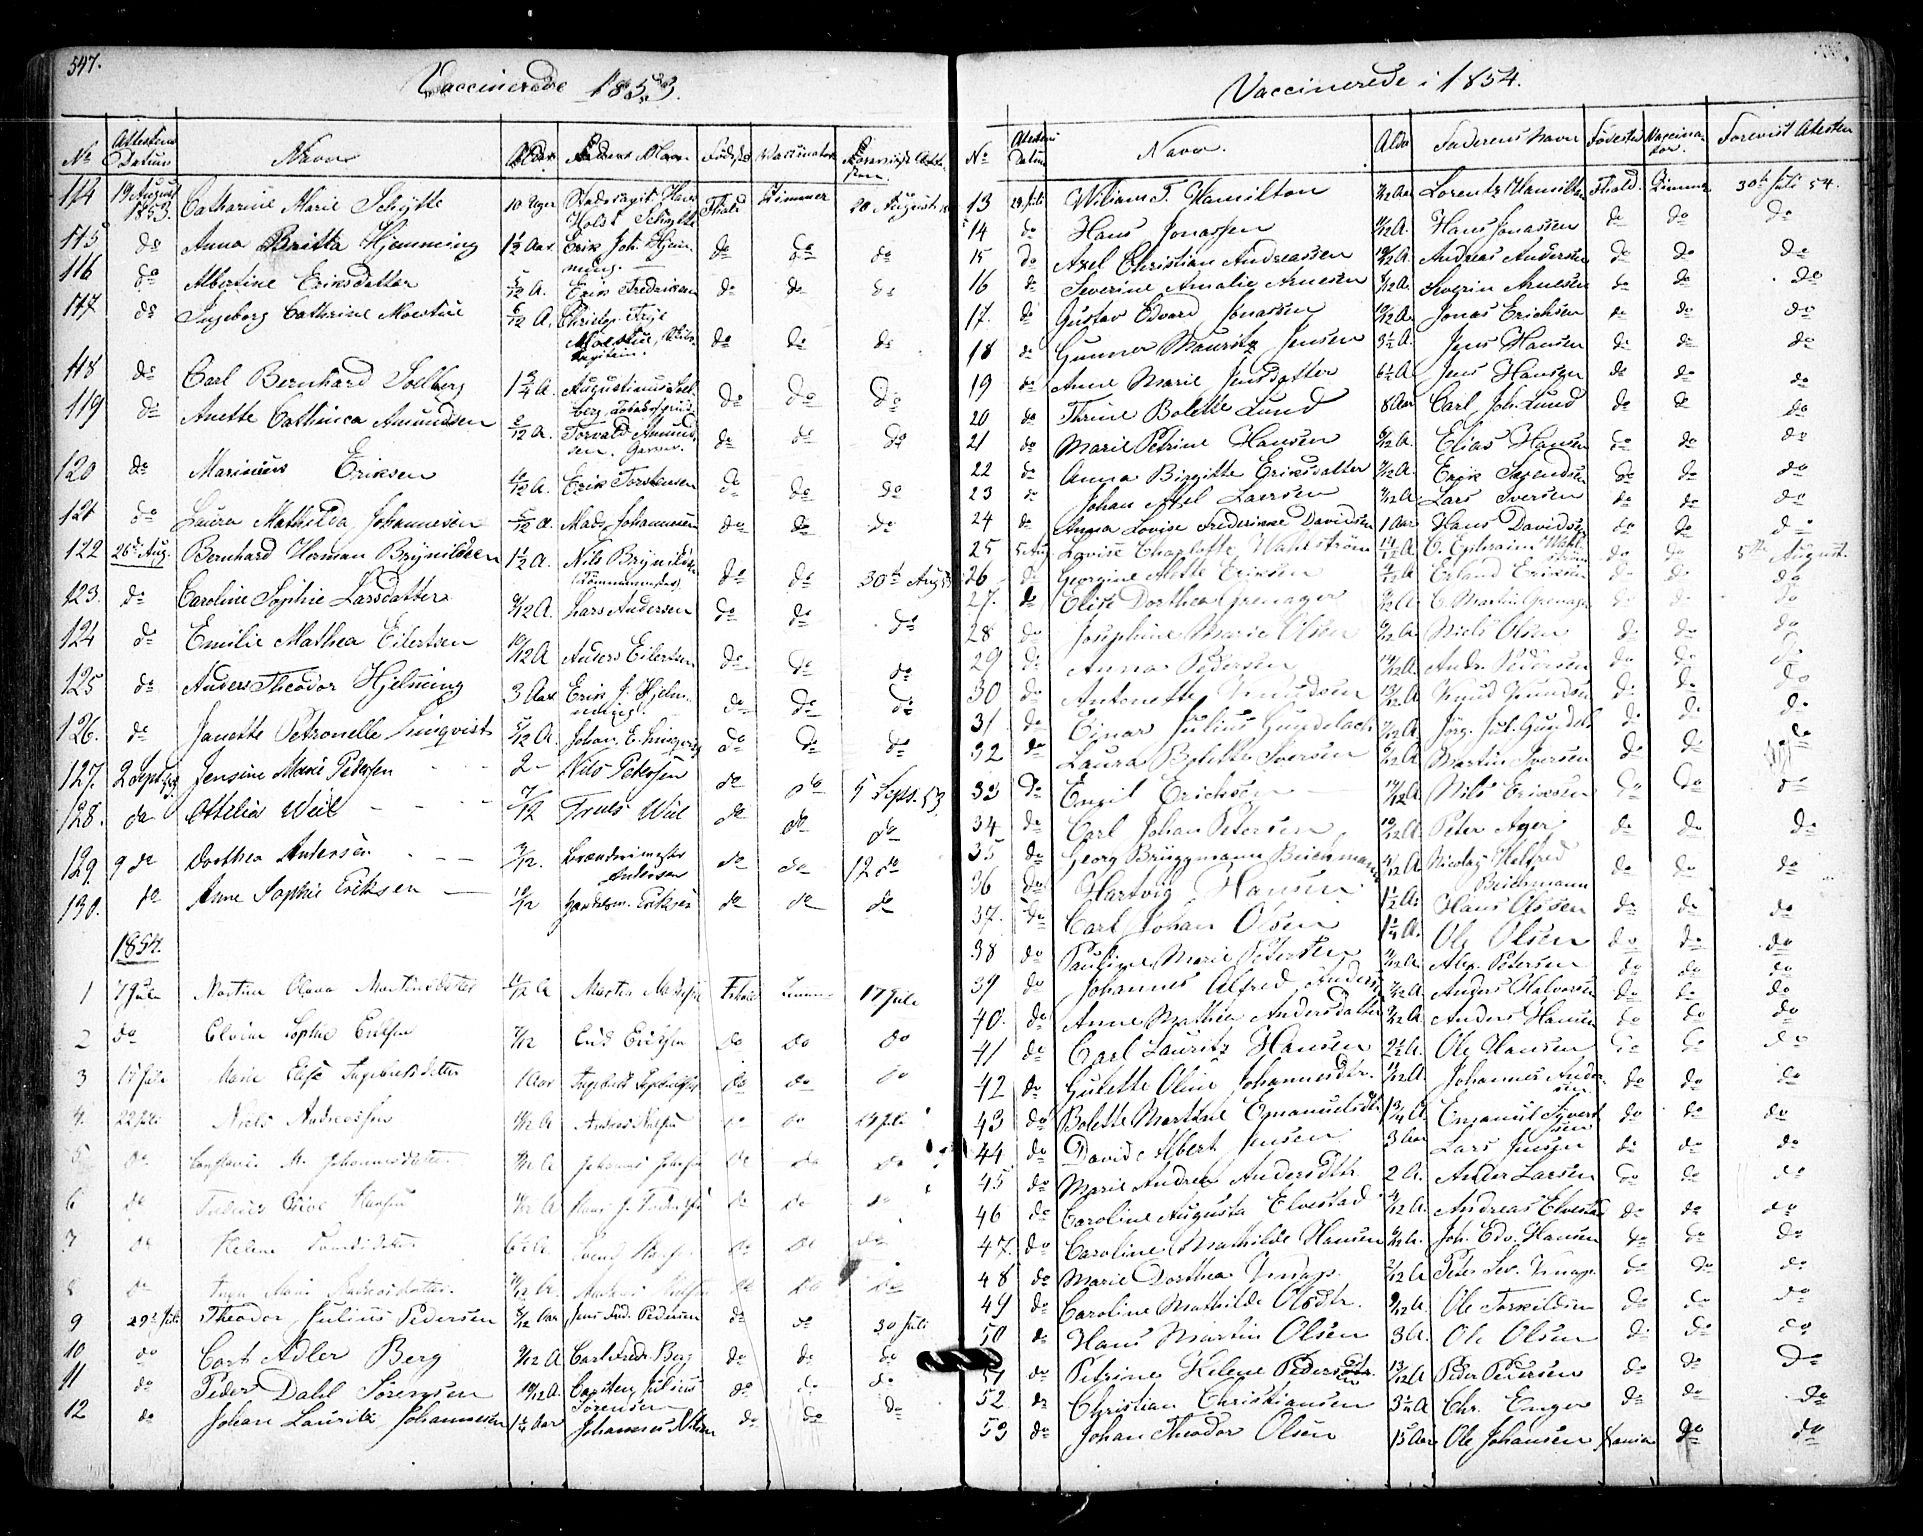 547.
Vaccinerede 1853.
No Attestens Datum Navn Alder Faders Navn Fødested Vaccinator Forevist Attesten
114 19 August 1853. Catharine Marie Schytte 10 Uger Stadscapit Hans Holst Schytte Fhald Zimmer 20 August
115 do Anna Britta Hjemming 1 1/2 Aar Erik Joh. Hjemming. do do do
116 do Albertine Eriksdatter 5/12 A. Erik Fredriksen do do do
117 do Ingeborg Cathrine Moestue 6/12 A. Christop. Frise Moestue, do do do
118 do Carl Bernhard Solberg 1 3/4 A. Augustinus Solberg, do do do
119 do Anette Cathinca Amundsen 8/12 A. Torvald Amundsen. Garver. do do do
120 do Marinius Eriksen 4/12 A. Erik Torstensen do do do
121 do Laura Mathilda Johannesen 5/12 A. Mads Johannesen do do do
122 26de Aug. Bernhard Herman Brynildsen 1 1/2 A. Nils Brynildsen (Tømmermand) do do 30te Aug 53
123. do Caroline Sophie Larsdatter 9/12 A. Lars Andersen do do do
124 do Emilie Mathea Eilertsen 10/12 A Anders Eilertsen do do do
125 do Anders Theodor Hjelming 3 Aar Erik J. Hjelming. do do do
126. do Janette Petronelle Linqvist 5/12 A. Johan E. Linqvist do do do
127. 2 Sept 53. Jensine Marie Pedersen 2 - Nils Pedersen do do 5 Septs. 53
128. do Ottilia Wiel 7/12 Truls Wiel do do do
129. 9 do Dorthea Andersen 7/12. Brændrimester Andersen do do 12 do
130. do Anne Sophie Eriksen 10/12 Eriksen do do do
1854.
1 7 Juli Martine Olava Martinsdatter 11/12 A Martin Fhald Zimmer 17 Juli
2 do Elvine Sophie Eriksen 7/12 Eriksen do do do
3 15 Juli Marie Elise Ingebretsdatter 1 Aar Ingebret do do do
4. 22 Juli Niels Andreassen A Andreas Nilsen do do Juli
5 do M. Johannesdatter A Johannes do do do
6 do Hansen A Hans J. do do do
7 do Helene 6 1/2 A do do do
8 do Marie do do do
9 29de Juli Theodor Julius Pedersen 8/12 Aar Jens Fred. Pedersen do do 30 Juli
10 do Carl Adler Berg 9/12 A Carl Fredr. Berg do do do
11 do Peder Dahl Sørensen 10/12 A. Carsten Julius Sørensen do do do
12 do Johan Lauritz Johannesen 1 1/4 Aar Johannes Nilsen do do do
Vaccinerede i 1854.
No Attestens Datum Navn. Alder Faderens Navn Fødested Vaccinator. Forevist Attesten
13 29 Juli Wiliam T. Hamilton 9/12 Aar Lorentz Hamilton Fhald. Zimmer 30te Juli 54.
14 do Hans Jonassen 11/12 A. Hans Jonassen do do do
15 do Axel Christian Andreassen 10/12 A. Andreas Andersen do do do
16 do Severine Amalie Arnesen 8/12 A. Severin Arnesen do do do
17. do Gustav Edvard Jonassen 10/12 A. Jonas Erichsen do do do
18 do Gunner Mauritz Jensen 3 1/2 A. Jens Hansen do do do
19 do Anne Marie Jensdatter 6 1/2 A Jens Hansen do do do
20 do Thrine Bolette Lund 8 Aar Carl Joh. Lund do do do
21 do Marie Petrine Hansen 6/12 A. Elias Hansen do do do
22 do Anna Birgitte Eriksdatter 7/12 A. Erik Svendsen do do do
23 do Johan Axel Larsen 7/12 A. Lars Iversen do do do
24 do Anna Lovise Frederikke Davidsen 1 Aar Hans Davidsen do do do
25 5 Aug Lovise Charlotte Wahlstrøm 14/12 A C. Ephraim Wahlstrøm do do 5te August.
26 do Georgine Alette Eriksen 9/12 A Erland Eriksen do do do
27. do Elise Dorthea Grenager 9/12 A. C. Martin Grenager do do do
28 do Josephine Marie Olsen 9/12 A Niels Olsen do do do
29 do Anna Pedersen 14/12 A. Andr. Pedersen do do do
30 do Antonette Knudsen 13/12 A Knud Knudsen do do do
31 do Einar Julius Gundelach 11/12 A. Jørg. Jul. Gundel. do do do
32 do Laura Bolette Iversen 6/12 A Martin Iversen do do do
33 do Emil Erichsen 14/12 A. Nils Erikson do do do
34 do Carl Johan Petersen 10/12 A. Peter Ager do do do
35 do Georg Brüggmann Beichmann 4/12 A Nicolay Beichmann do do do
36 do Hartvig Hansen 1 1/2 A. Hans Olssen do do do
37. do Carl Johan Olsen 1 1/4 A. Ole Olsen do do do
38 do Pauline Marie Petersen 11/12 A. Alex. Petersen do do do
39 do Johannes Alfred Andersen 7/12 A. Anders Halvorsen do do do
40. do Anne Mathea Andersdatter 7/12 A. Anders Hansen do do do
41 do Carl Lauritz Hansen 2 1/2 A. Ole Hansen do do do
42 do Gulette Oline Johannesdtr. 11/12 A. Johannes Andersen do do do
43 do Bolette Martine Emanuelsdtr 1 3/4 A Emanuel Syvertsen do do do
44 do David Albert Jensen 3 Aar Lars Jensen do do do
45 do Marie Andrea Andersdtr 2 A. Ander Larsen do do do
46 do Caroline Augusta Elvestad 4/12 A. Andreas Elvestad do do do
47. do Caroline Mathilde Hansen 6/12 A. Joh. Edv. Hansen do do do
48 do Marie Dorthea Knap. 2/12 A Peter Sev. Knap. do do do
49 do Caroline Mathilde Olsdtr. 9/12 A. Ole Torkildsen do do do
50 do Hans Martin Olsen 3 A. Ole Olsen do do do
51 do Petrine Helene Pedersdtr 13/12 A Peder Pedersen do do do
52 do Christian Christiansen 3 1/4 A Chr. Enger do do do
53 do Johan Theodor Olsen 15 Aar Ole Johansen Xania do do